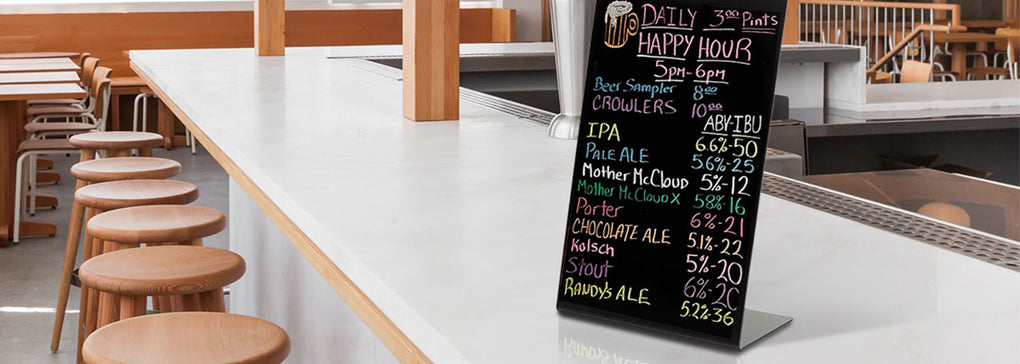 DAILY 3⁰⁰ Pints
HAPPY HOUR
5PM-6PM
Beer Sampler 8⁰⁰
CROWLERS 10⁰⁰
ABY-IBU
IPA 6.6%-50
PALE ALE 5.6%-25
Mother McCloud 5%-12
Mother McCloud X 5.8%-16
Porter 6%-21
CHOCOLATE ALE 5.1%-22
Kolsch 5%-20
Stout 6%-20
RANDY'S ALE 5.2%-36